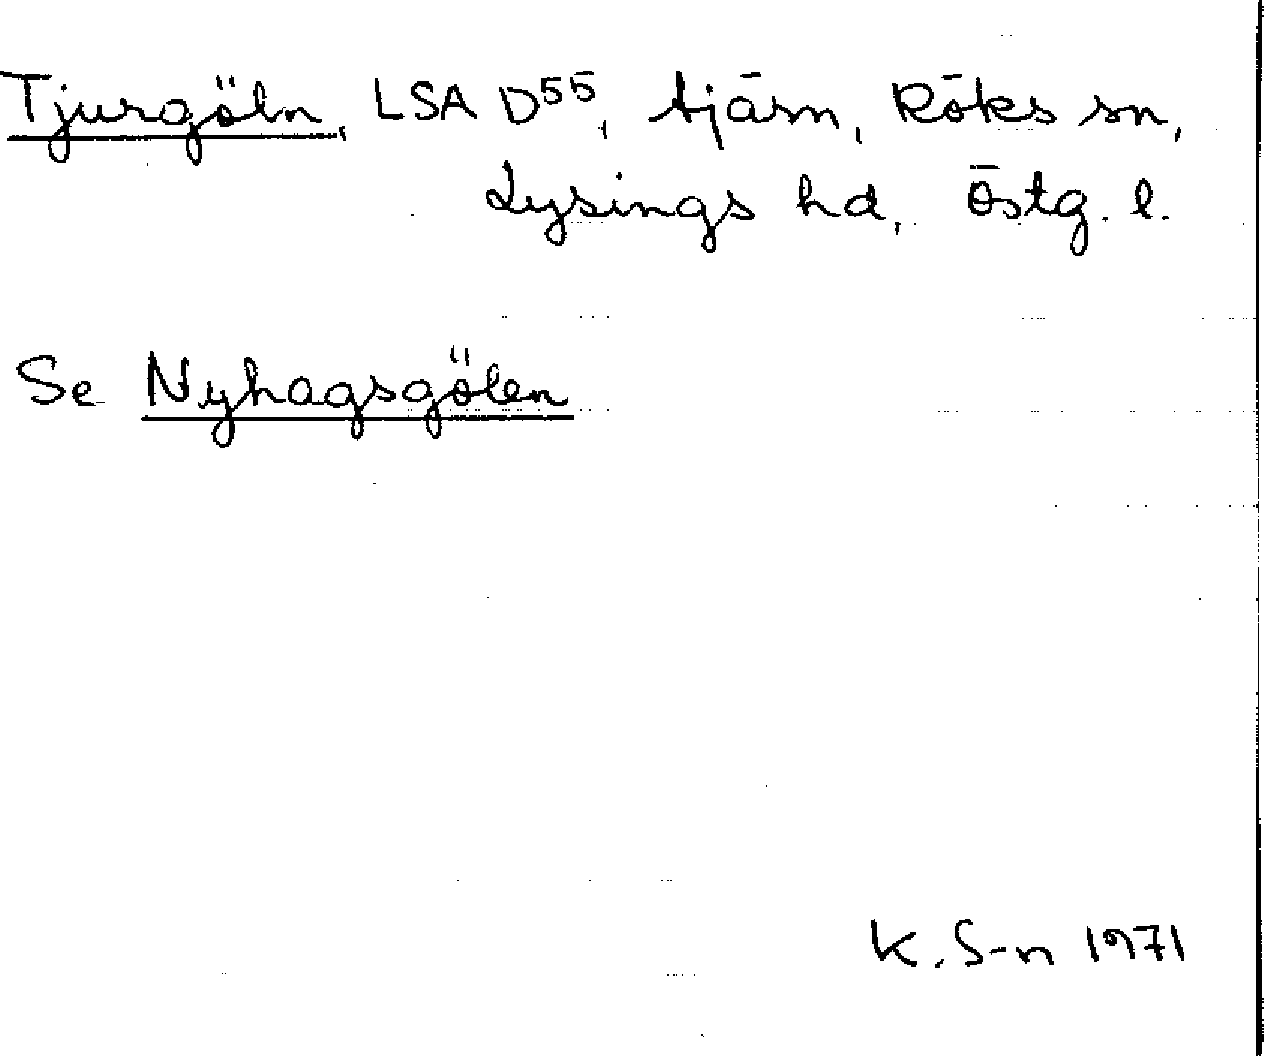 Tjurgöln, LSA D55, tjärn, Röks sn,
Lysings hd, Östg. l.
Se Nyhagsgölen
K. S-n 1971